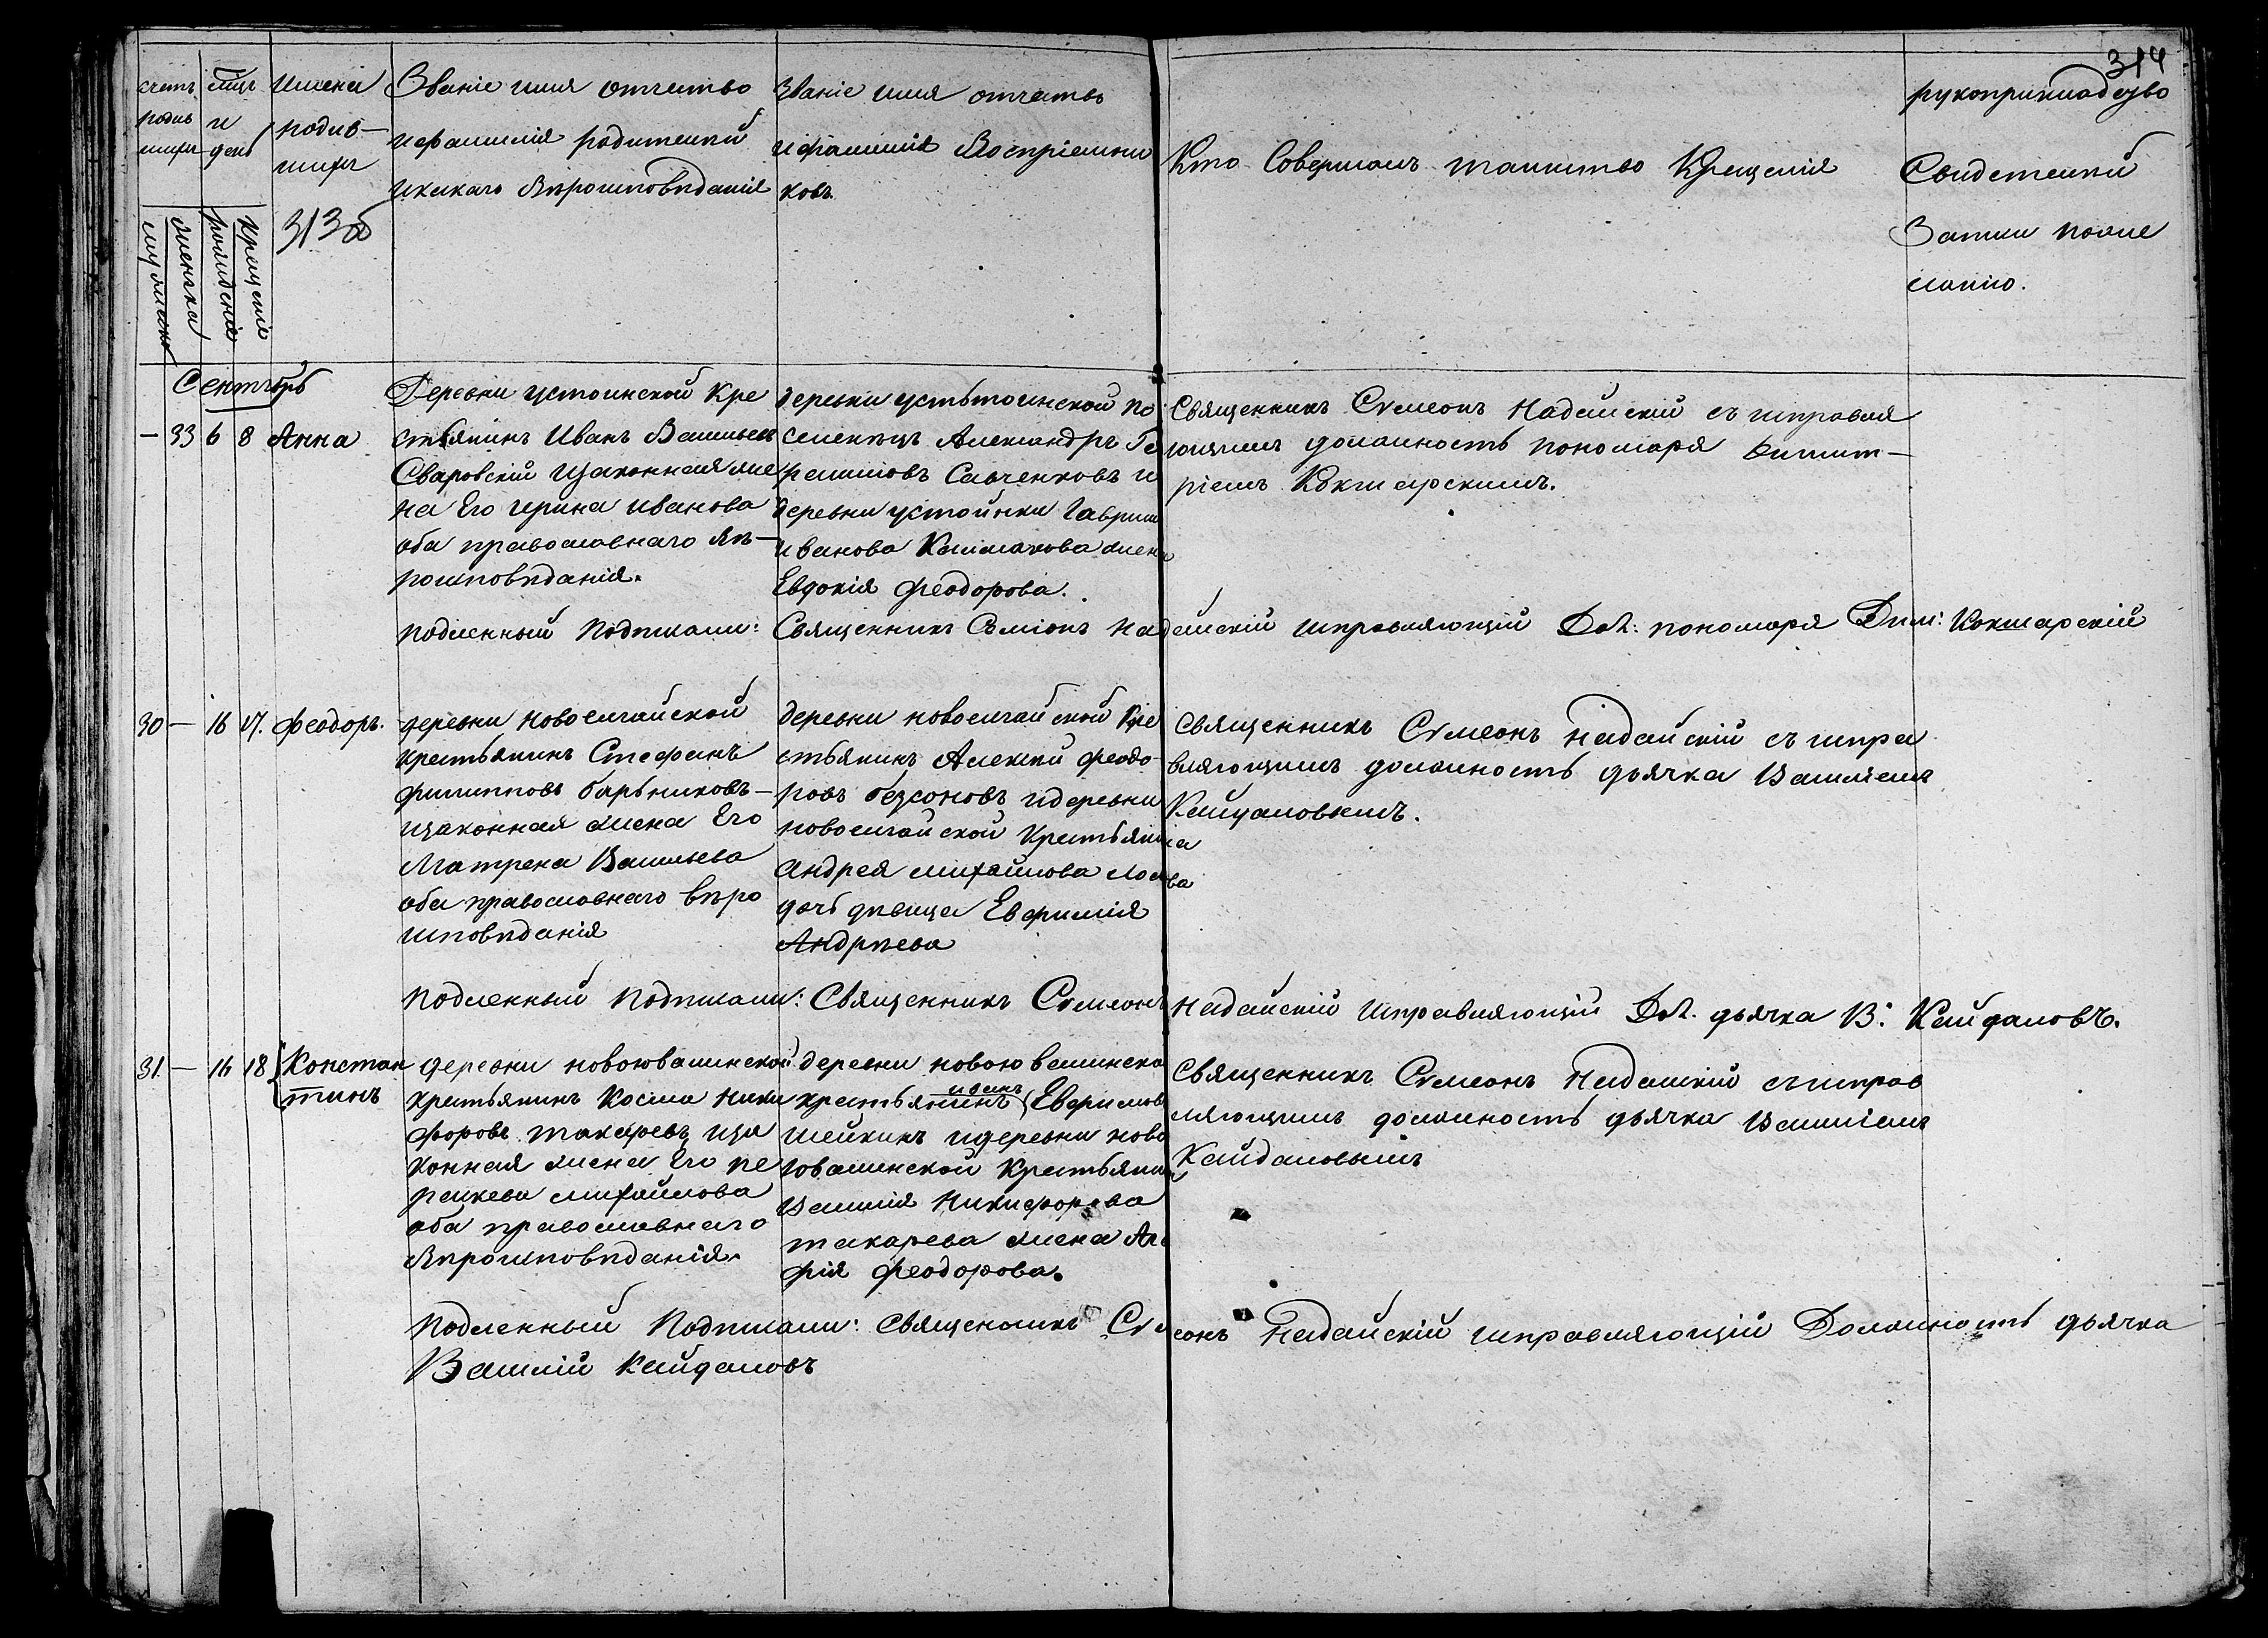 314
счетъ родив шихъ
мѣсяцъ и день
Имена родив— шихъ
Званіе имя отчество
и фамилія родителей
и какаго вѣроисповѣданія
Званіе имя отчество
и фамилія воспріемни
ковъ.
Кто совершалъ таинство крещенія
рукоприкладство
Свидетелей
Записи по же
ланію.
мужеска
женска
рожденія
крещенія
313об
Сентябрь
— 33 6 8 Анна
Деревни устоинской Кре
стьянинъ Иванъ Васильевъ
Сваровскій и законная же
на Его ирина иванова
оба православнаго вѣ—
роисповѣданія.
деревни устьтоинской по
селенецъ Александръ Ге
расимовъ Савченковъ и
деревни устойнки Гаврила
иванова Калмакова жена
Евдокія феодорова.
Священникъ Сѵмеонъ Надеискій съ исправля
ющимъ должность пономаря Димит—
ріемъ Кокшарскимъ.
подленный подписали: Священникъ Сѵміонъ Надеискій исправляющій Дол: пономаря Дим: Кокшарскій
30 — 16 17. феодоръ.
деревни новоелгайской
крестьянинъ Стефанъ
филипповъ
и законная жена Его
Матрена Васильева
оба православнаго вѣро
исповѣданія
деревни новоелгайской Кре
стьянинъ Алексѣй феодо-
ровъ безсоновъ и деревни
новоелгайской Крестьянина
андрея михайлова
дочь дѣвица Евфимія
Андрѣева
священникъ Сѵмеонъ Надайскій съ испра
вляющимъ должность дьячка Василіемъ
Кайдаловымъ.
подленный подписали: Священникъ Сѵмеонъ Надайскій исправляющій Дол. дьячка В: Кайдаловъ.
31 — 16 18 Констан
тинъ
деревни новоювалинской
крестьянинъ Косма Ники
форовъ токаревъ и за
конная жена Его пе
рескева михайлова
оба православнаго
вѣроисповѣданія.
деревни новоювалинской
иванъ
крестьянинъ Евфимовъ
шейкинъ и деревни ново
ювалинской Крестьянина
василія Никифорова
токарева жена Ага
фія феодорова.
священникъ Сѵмеонъ Надайскій съ исправ
ляющимъ должность дьячка Василіемъ
Кайдаловымъ
подленный подписали: священникъ Сѵмеонъ Надайскій исправляющій Должность дьячка
Василій кайдаловъ